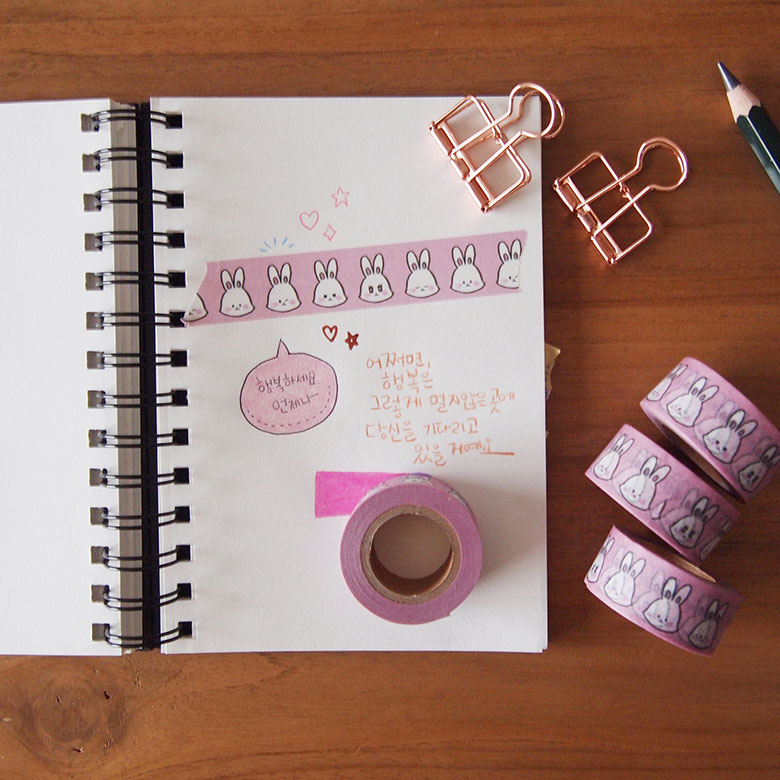 행복하세요
언제나~
어쩌면,
행복은
그렇게 멀지않은곳에
당신을 기다리고
있을 거예요